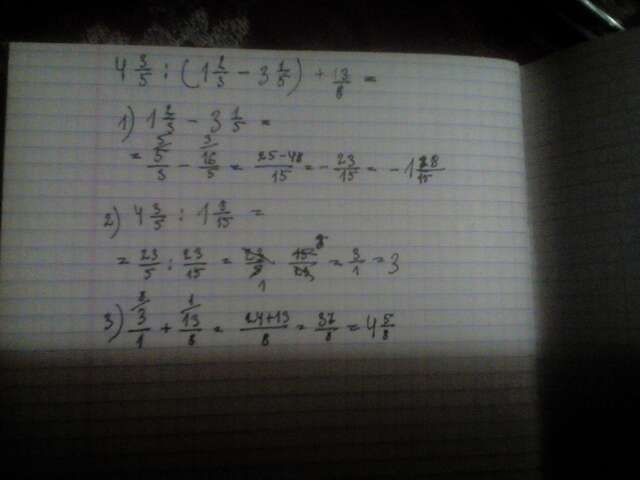 4 3/5 : (1 2/3 − 3 1/5) + 13/8 =
1) 1 2/3 − 3 1/5 =
= 5/3 − 16/5 = 25−48/15 = − 23/15 = − 1 8/15
2) 4 3/5 : 1 8/15 =
= 23/5 : 23/15 = 23/5 · 15/23 = 3/1 = 3
3) 3/1 + 13/8 = 24+13/8 = 37/8 = 4 5/8